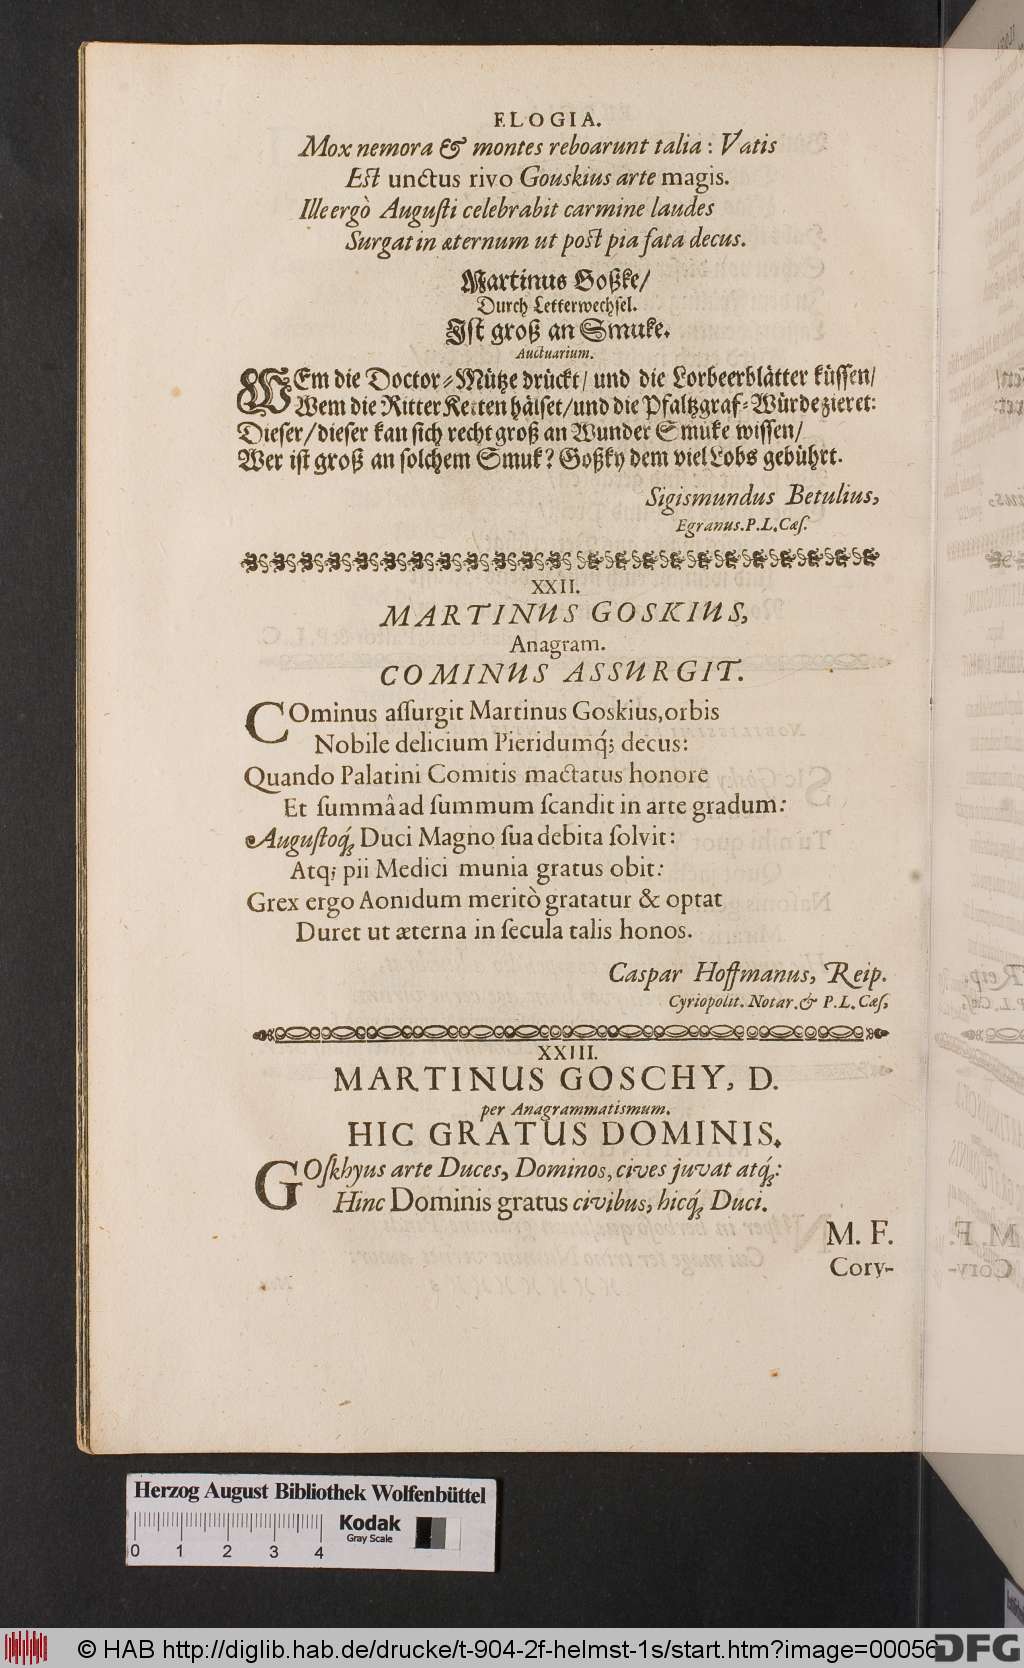 ELOGIA.
Mox nemora & montes reboarunt talia: Vatis
Est unctus rivo Gouskius arte magis.
Ille ergò Augusti celebrabit carmine laudes
Surgat in æternum ut post pia fata decus.
Martinus Goßke/
Durch Letterwechsel.
Ist groß an Smuke.
Auctuarium.
WEm die Doctor-Mütze drückt/ und die Lorbeerblätter küssen/
Wem die Ritter Ketten hälset/ und die Pfaltzgraf-Würde zieret:
Dieser/ dieser kan sich recht groß an Wunder Smuke wissen/
Wer ist groß an solchem Smuk? Goßky dem viel Lobs gebührt.
Sigismundus Betulius,
Egranus. P. L. Cæs.
XXII.
MARTINUS GOSKIUS,
Anagram.
COMINUS ASSURGIT.
COminus assurgit Martinus Goskius, orbis
Nobile delicium Pieridumq́; decus:
Quando Palatini Comitis mactatus honore
Et summâ ad summum scandit in arte gradum:
Augustoq́; Duci Magno sua debita solvit:
Atq; pii Medici munia gratus obit:
Grex ergo Aonidum meritò gratatur & optat
Duret ut æterna in secula talis honos.
Caspar Hoffmanus, Reip.
Cyriopolit. Notar. & P. L. Cæs,
XXIII.
MARTINUS GOSCHY, D.
per Anagrammatismum.
HIC GRATUS DOMINIS.
GOskhyus arte Duces, Dominos, cives juvat atq́;:
Hinc Dominis gratus civibus, hicq́; Duci.
M. F.
Cory-
Herzog August Bibliothek Wolfenbüttel
Kodak
Gray Scale
0 1 2 3 4
© HAB http://diglib.hab.de/drucke/t-904-2f-helmst-1s/start.htm?image=00056
DFG